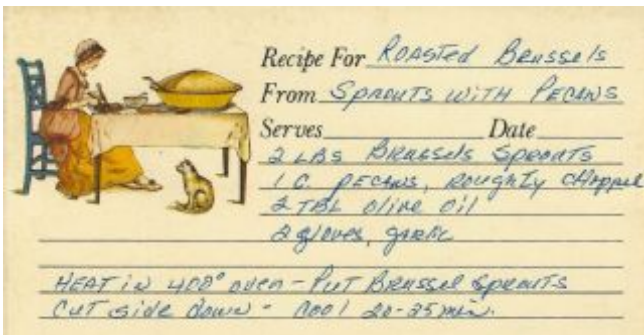 Recipe For Roasted Brussels
From Sprouts with Pecans
Serves Date
2 LBS Brussels Sprouts
1 C. pecans, roughly chopped
2 TBL olive oil
2 gloves, garlic
HEAT in 400° oven - Put Brussel Sprouts
Cut side down - 20-25 min.